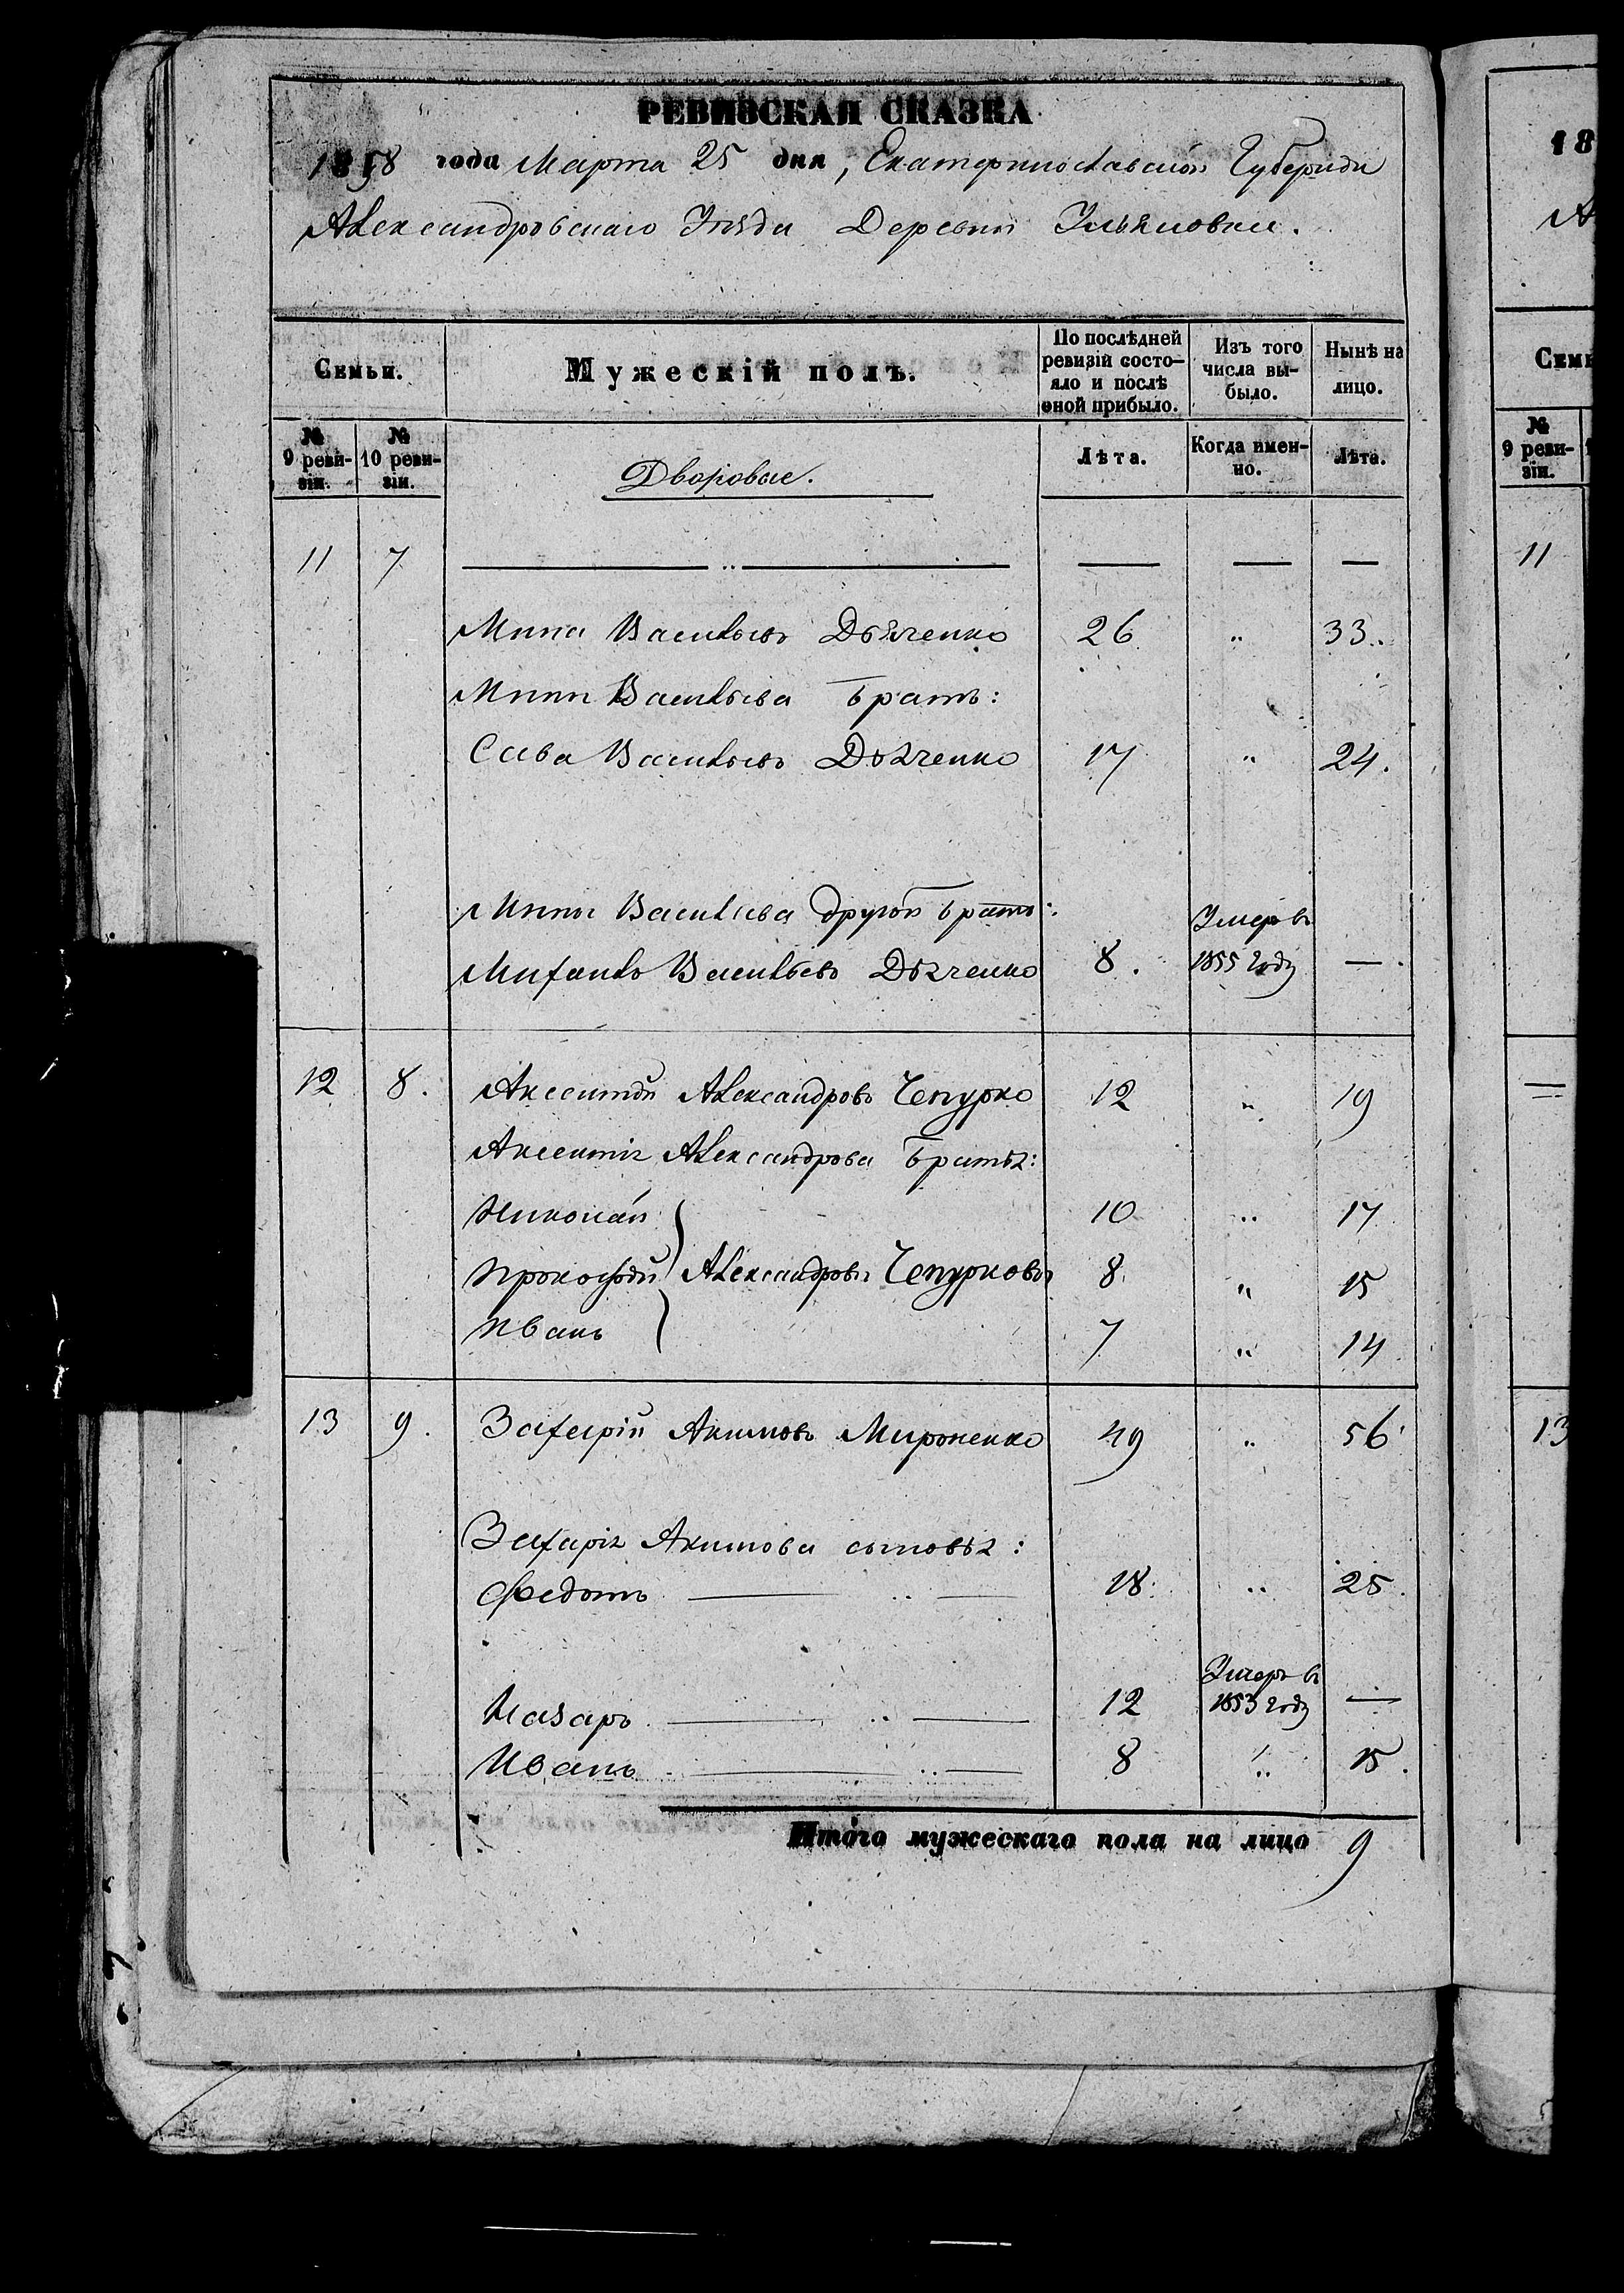 РЕВИЗСКАЯ СКАЗКА
1858 года Марта 25 дня, Екатеринославской Губерніи
Александровскаго Уѣзда Деревни Ульяновки.
Семьи. Мужескій полъ. По послѣдней ревизіи состо-яло и послѣ оной прибыло. Изъ того числа вы-было. Нынѣ на лицо.
№ 9 реви-зіи. № 10 реви-зіи. Дворовые. Лѣта. Когда имен-но. Лѣта.
11 7 — „ — — — —
Мина Васильевъ Дьяченко 26 „ 33.
Мины Васильева братъ:
Сава Васильевъ Дьяченко 17 „ 24.
Мины Васильева другой братъ:
Михаилъ Васильевъ Дьяченко 8. Умеръ въ 1855 году —
12 8. Аксентій Александровъ Чепурко 12 „ 19
Аксентія Александрова братья:
Николай 10 „ 17
Прокофій Александровы Чепурковы 8 „ 15
Иванъ 7 „ 14
13 9. Захарій Акимовъ Мироненко 49 „ 56
Захарія Акимова сыновья:
Федотъ — „ — 18 „ 25.
Назаръ — „ — 12 Умеръ въ 1853 году —
Иванъ — „ — 8 „ 15.
Итого мужескаго пола на лицо 9
18
А
Семь
№ 9 реви-зіи.
11
—
13